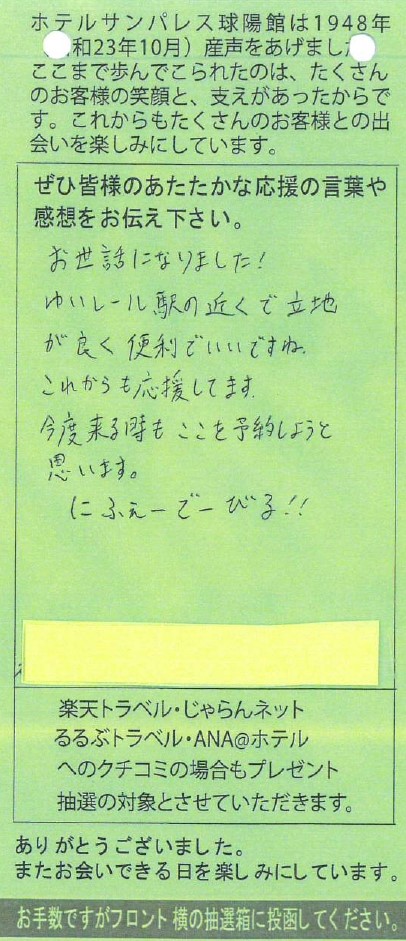 ホテルサンパレス球陽館は1948年
和23年10月）産声をあげまし
ここまで歩んでこられたのは、たくさん
のお客様の笑顔と、支えがあったからで
す。これからもたくさんのお客様との出
会いを楽しみにしています。
ぜひ皆様のあたたかな応援の言葉や
感想をお伝え下さい。
お世話になりました！
ゆいレール駅の近くで立地
が良く便利でいいですね。
これからも応援してます。
今度来る時もここを予約しようと
思います。
にふぇーでーびる!!
楽天トラベル・じゃらんネット
るるぶトラベル・ANA@ホテル
へのクチコミの場合もプレゼント
抽選の対象とさせていただきます。
ありがとうございました。
またお会いできる日を楽しみにしています。
お手数ですがフロント横の抽選箱に投函してください。